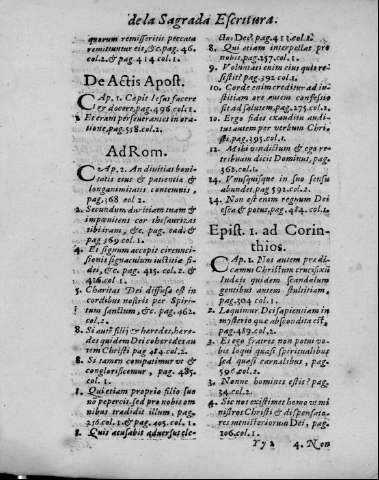 de la Sagrada Escritura.
quorum remisseritis peccata
remittuntur eis, &c. pag. 46.
col. 2. & pag. 414 col. 1.
De Actis Apost.
CAp. 1. Cœpit Iesus facere
et docere, pag. 498. col. 1.
2. Et erant perseverantes in ora-
tione, pag. 518. col. 2.
Ad Rom.
CAp. 2. An divitias boni-
tatis eius & patientiæ &
longanimitatis contemnis,
pag. 368 col. 2.
2. Secundum duritiam tuam &
impænitens cor thesaurizas
tibi iram, & c. pag. eadi. &
pag 369 col. 1.
4. Et signum accepit circunci-
sionis signaculum iustitiæ fi-
dei, &c. pag. 425. col. 2. &
426. col. 1.
5. Charitas Dei diffusa est in
cordibus nostris per Spiri-
tum sanctum, &c. pag. 462.
col. 2.
8. Si autẽ filij & heredes, here-
des quidem Dei coheredes au
tem Christi pag 484. col. 2.
8. Si tamen compatimur vt &
conglorificemur, pag. 485.
col. 1.
8. Qui etiam proprio filio suo
nõ pepercit, sed pro nobis om
nibus tradidit illum, pag.
256. col. 1. & pag. 405. col. 1.
8. Quis acusabit adversus ele-
ctos Dei? pag. 423. col. 2.
8. Qui etiam interpellat pro
nobis, pag. 257. col. 1.
9. Voluntati enim eius quis re-
sistit? pag. 392 col. 1.
10. Corde enim creditur ad iu-
stitiam ore autem confessio
fit ad salutem, pag. 275. col. 1.
10. Ergo fides exauditu audi-
tus autem per verbum Chri-
sti, pag. 395. col. 1.
12. Mihi vindictam & ego re-
tribuam dicit Dominus, pag.
362. col. 1.
14. Vnusquisque in suo sensu
abundet, pag 592. col. 2.
14. Non est enim regnum Dei
esca & potus, pag. 484. col. 1.
Epist. 1. ad Corin-
thios.
CAp. 1. Nos autem prædi-
camus Christum crucifixũ
Iudæis quidem scandalum
gentibus autem stultitiam,
pag. 304 col. 1.
2. Loquimur Dei sapientiam in
mysterio quæ abscondita est,
pag. 489. col. 2.
3. Et ego fratres non potui vo-
bis loqui quasi spiritualibus
sed quasi carnalibus, pag.
596. col. 2.
3. Nonne homines estis? pag.
34. col. 2.
4. Sic nos existimet homo vt mi
nistros Christi & dispensato-
res ministeriorum Dei, pag.
206. col. 1.
Yy 2 4. Non